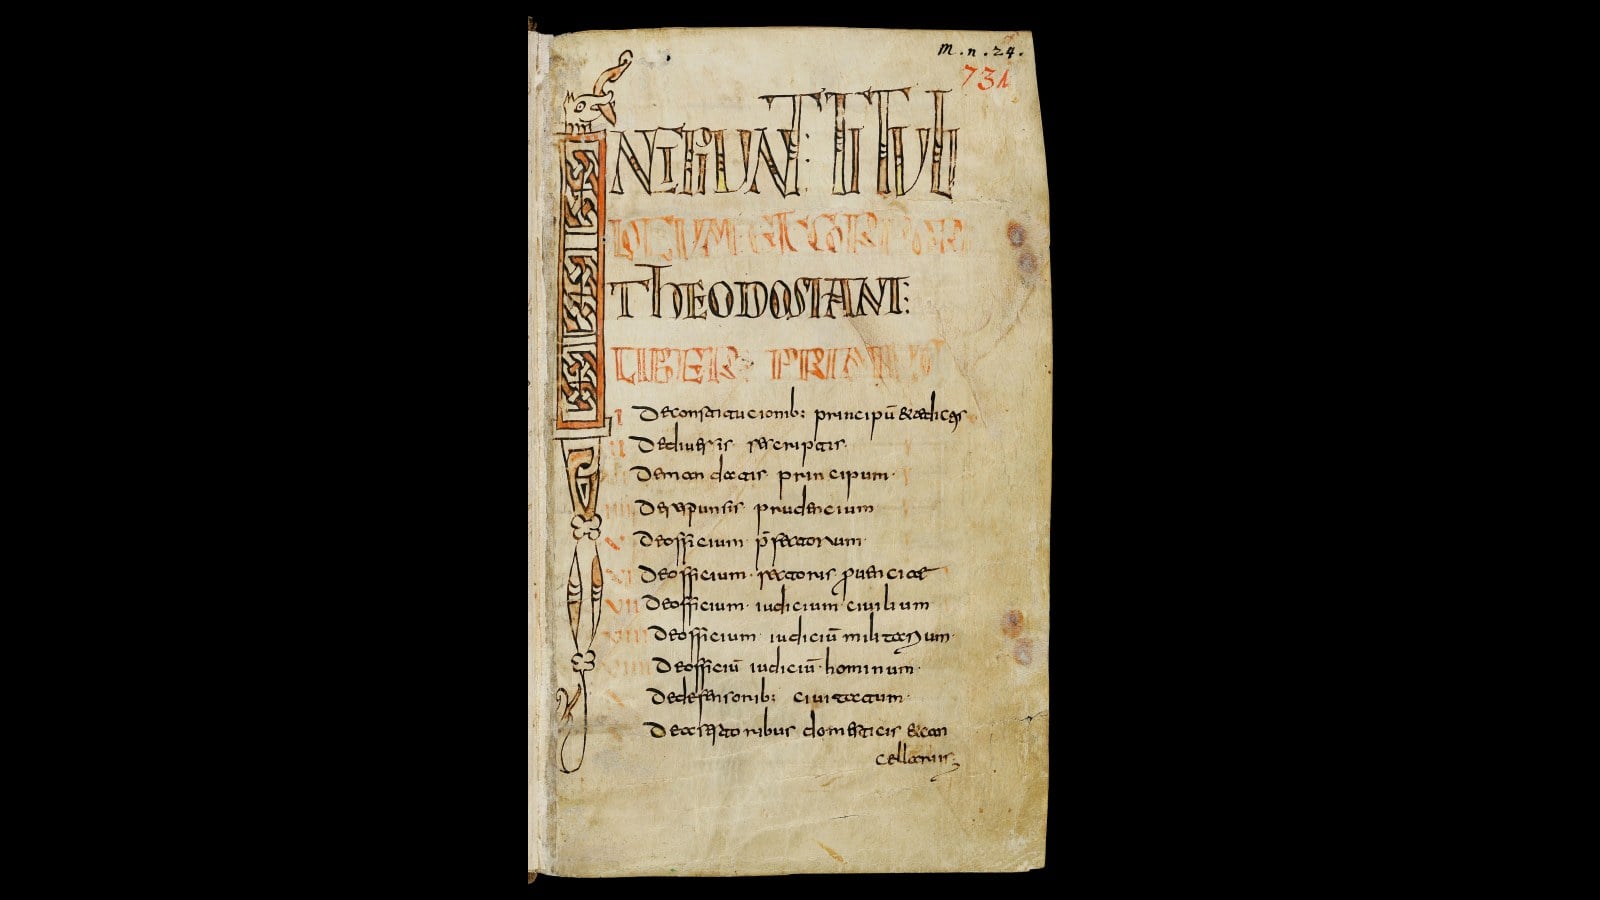 m.n.24.
731
INCIPIUNT: TITULI
THEODOSIANI:
LIBER: PRIMU
I Deconstitucionib: principū & edictis
II Dediuersis rescriptis.
Demandatis. principum.
IIII Derepunsis. prudencium
V Deofficium p̄fectorum.
VI Deofficium. rectoris prouenciae
VII Deofficium. iudicium ciuilium
VIII Deofficium. iudiciū militarium.
VIIII Deofficiū iudiciū. hominum.
Dedefensorib: ciuitatum.
domesticis & can
cellariis